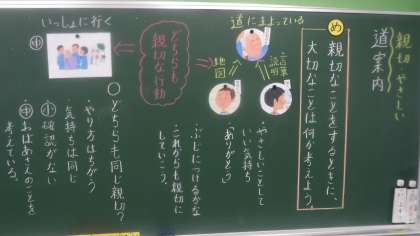 親切 やさしい
道案内
め 親切なことをするときに、
大切なことは何か考えよう。
道にまよっている
地図
言葉
説明
・やさしいことして
いい気持ち
「ありがとう」
・ぶじにつけるかな
・これからも親切に
していこう。
どちらも
親切な行動
いっしょに行く
中
○どちらも同じ親切？
・やり方はちがう。
・気持ちは同じ
小 確認がない
中 おばあさんのことを
考えている。